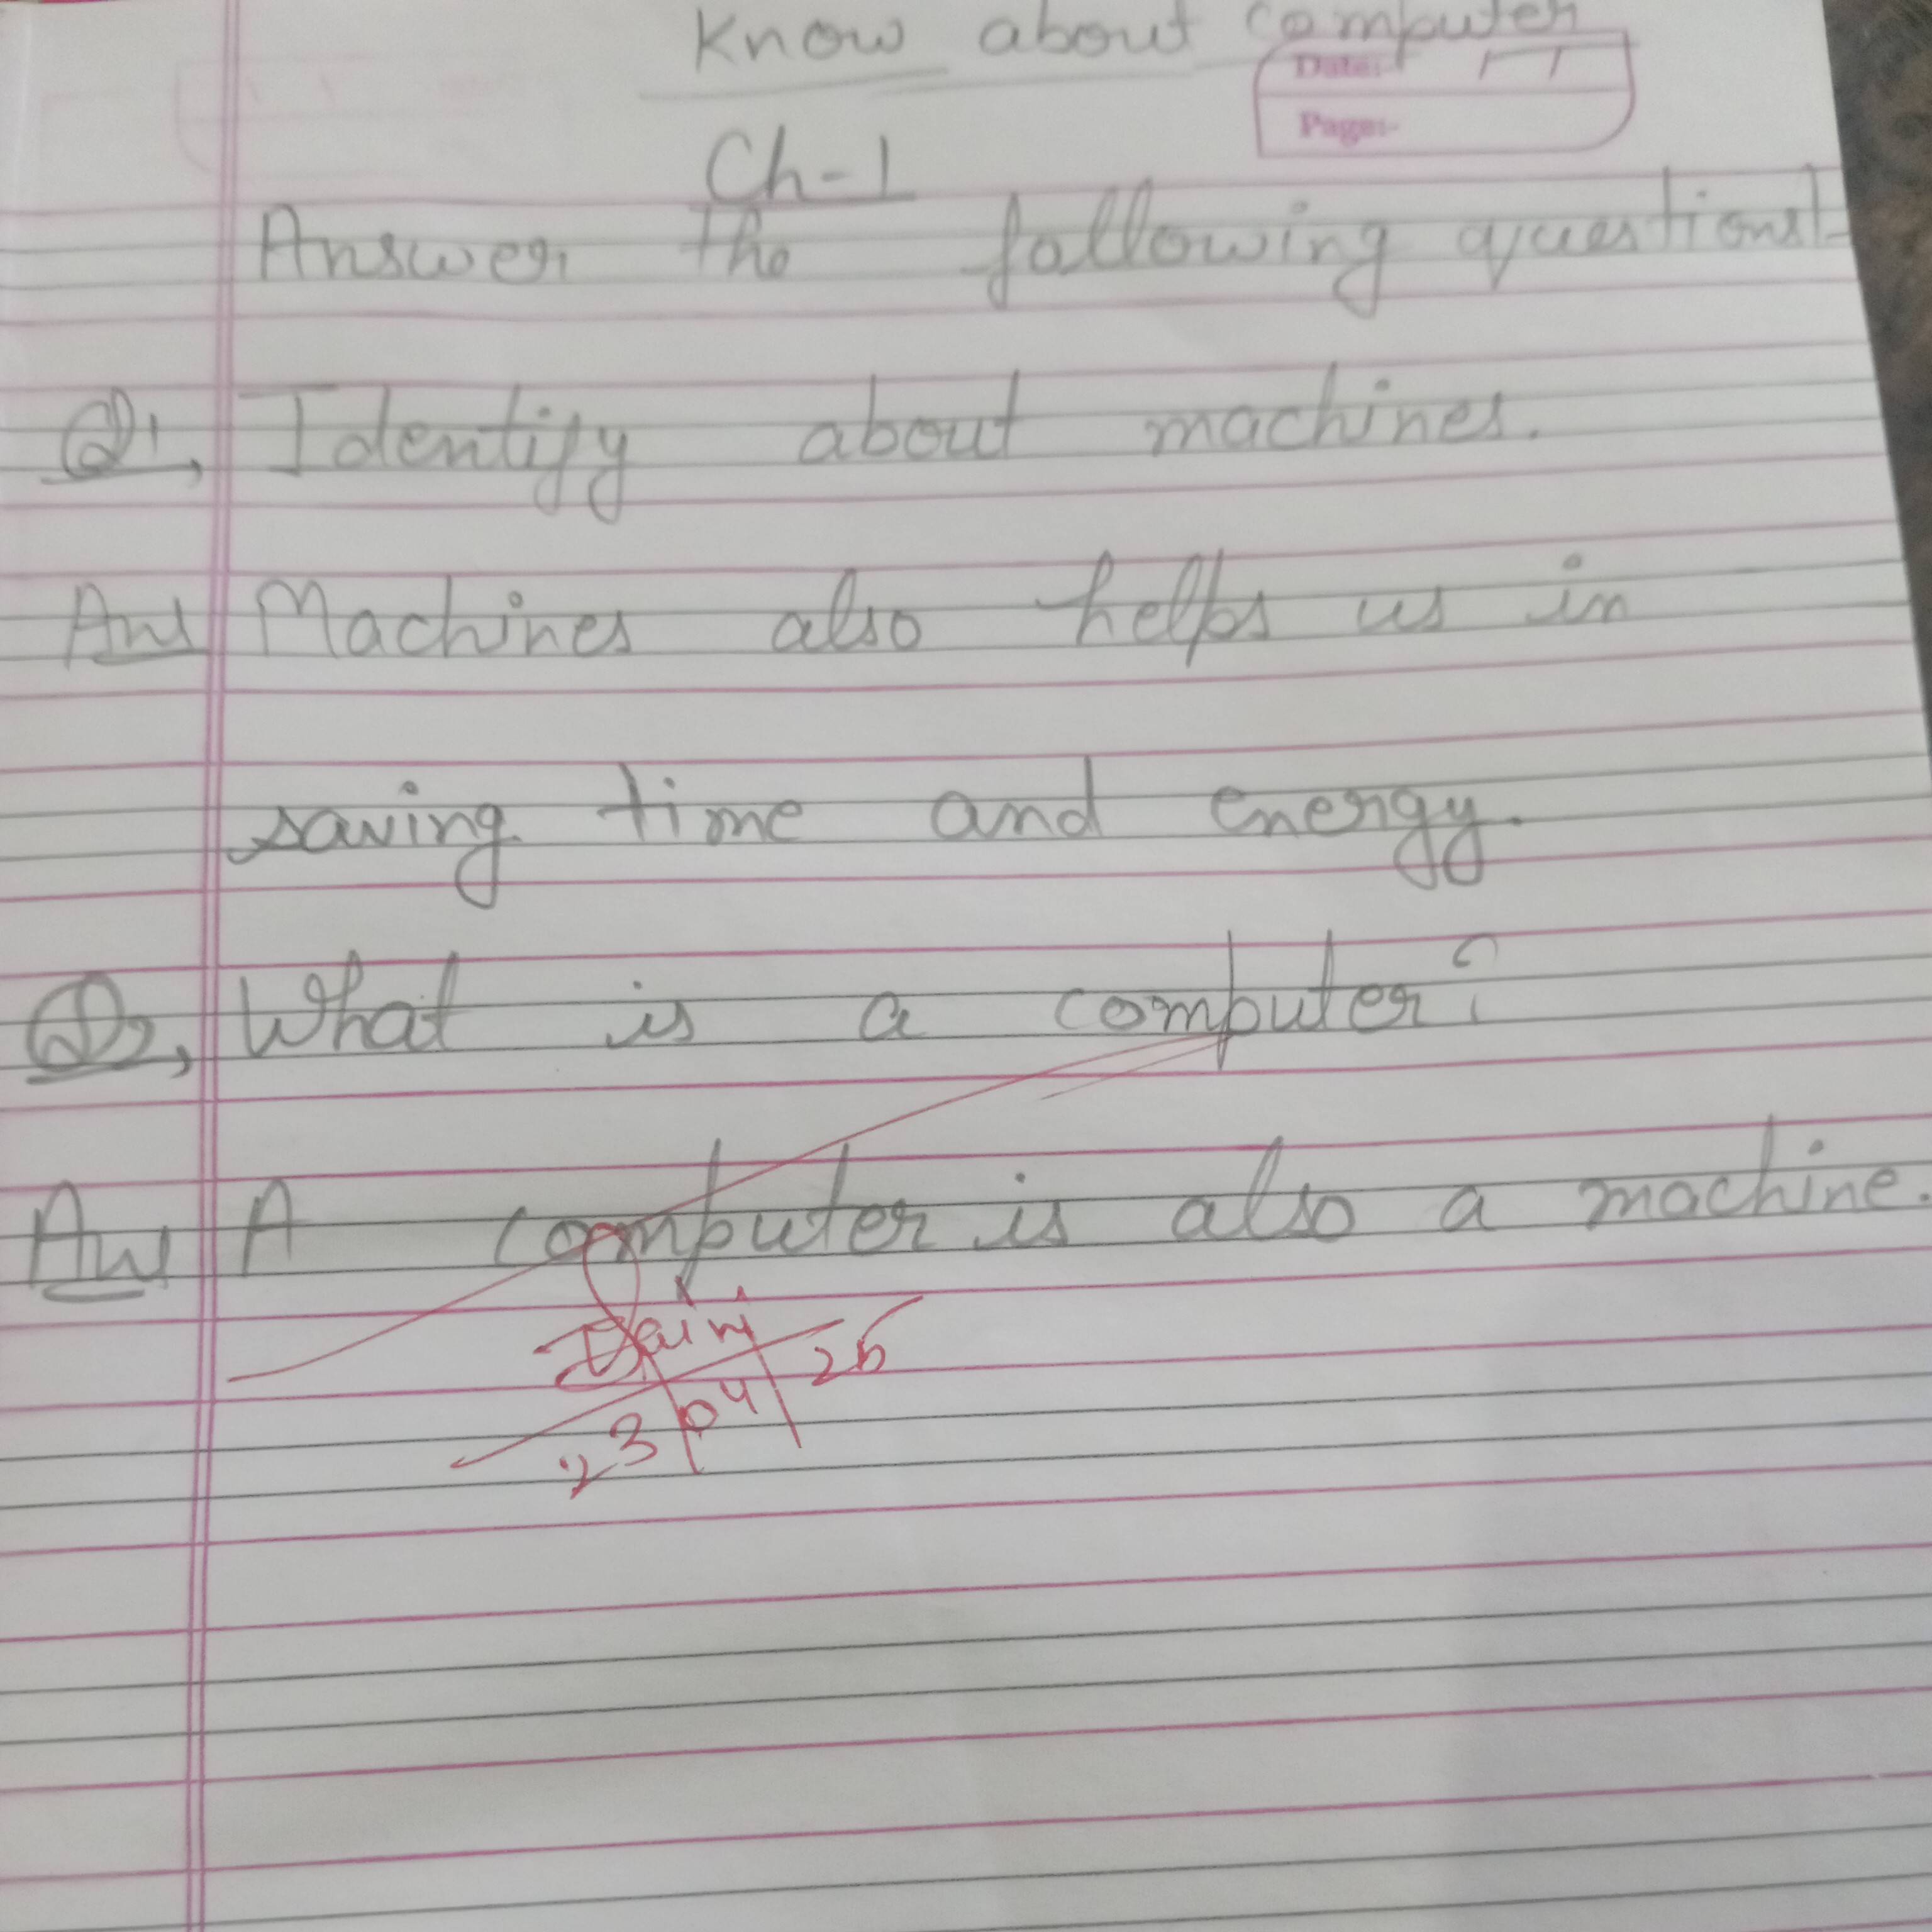 Know about computer
Date:-
Page:-
Ch-1
Answer the following questions:-
Q1, Identify about machines.
Ans Machines also helps us in
saving time and energy.
Q2, What is a computer?
Ans A computer is also a machine.
23/04/26